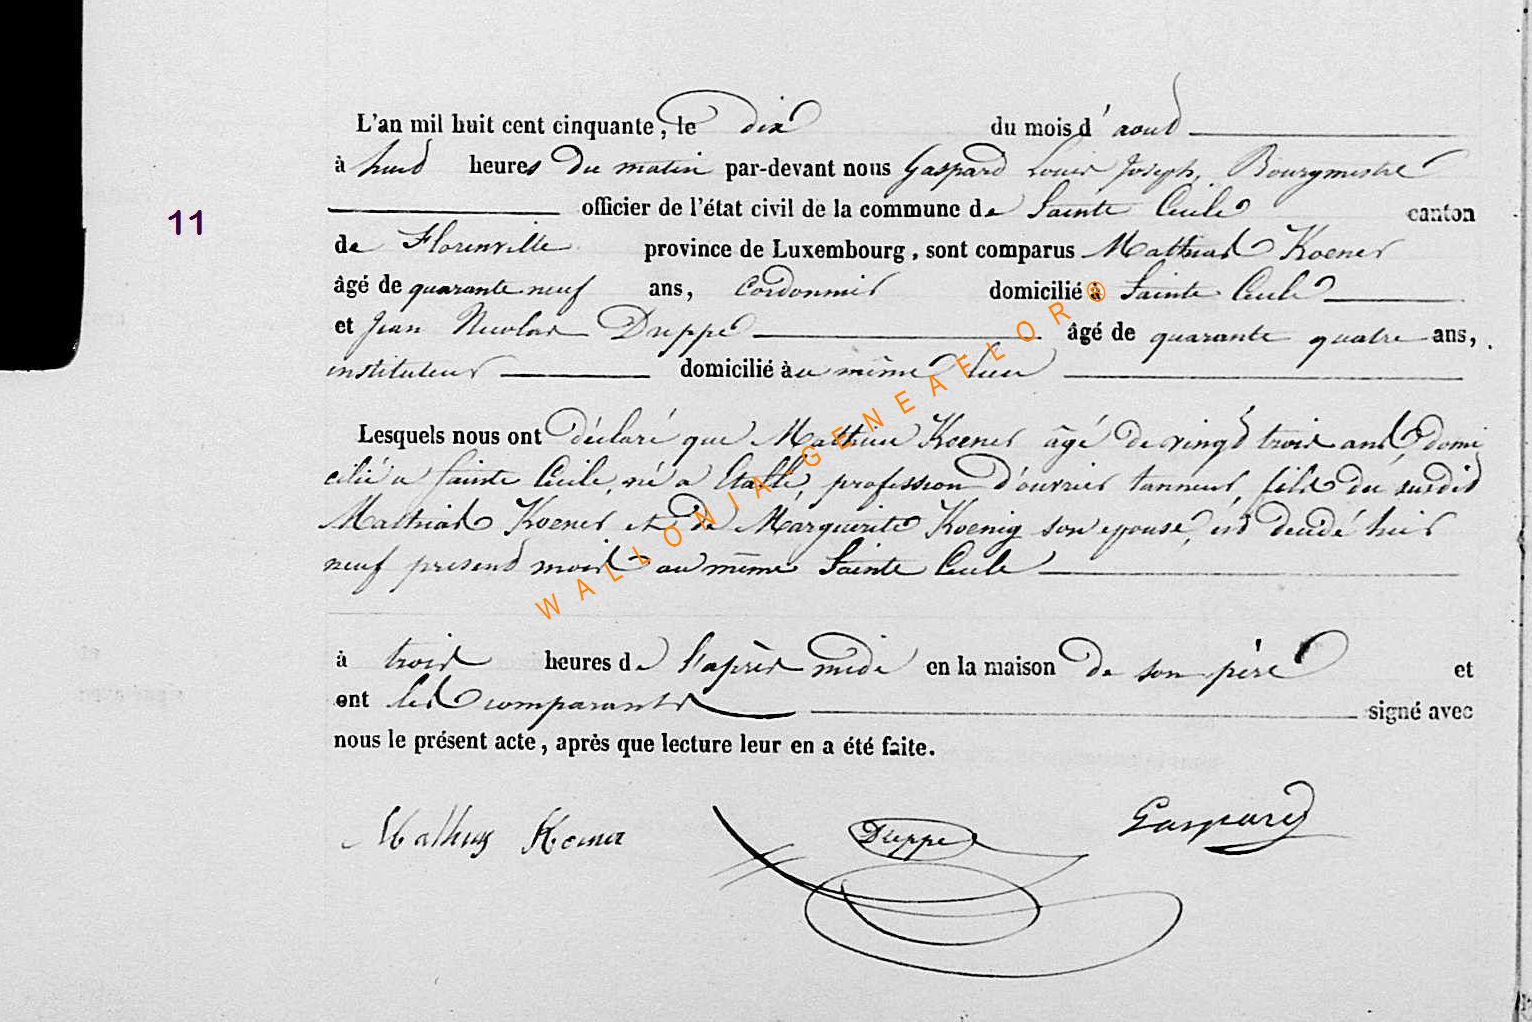 L'an mil huit cent cinquante, le dix du mois d'aout
à huit heures du matin par-devant nous Gaspard Louis Joseph, Bourgmestre
officier de l'état civil de la commune de Sainte Cecile canton
11
de Florenville province de Luxembourg, sont comparus Mathias Koener
âgé de quarante neuf ans, Cordonnier domicilié à Sainte Cecile
et Jean Nicolas Dreppe âgé de quarante quatre ans,
instituteur domicilié au même lieu
Lesquels nous ont déclaré que Mathieu Koener âgé de vingt trois ans, domi
cilié a Sainte Cecile, né a Etalle, profession d'ouvrier tanneur, fils du susdit
Mathias Koener et de Marguerite Koenig son epouse, est decidé hier
neuf present mois au même Sainte Cecile
à trois heures de l'après midi en la maison de son père et
ont les comparants signé avec
nous le présent acte, après que lecture leur en a été faite.
Mathias Koener Dreppe Gaspard
WALLONIA-GENEAFLOR®